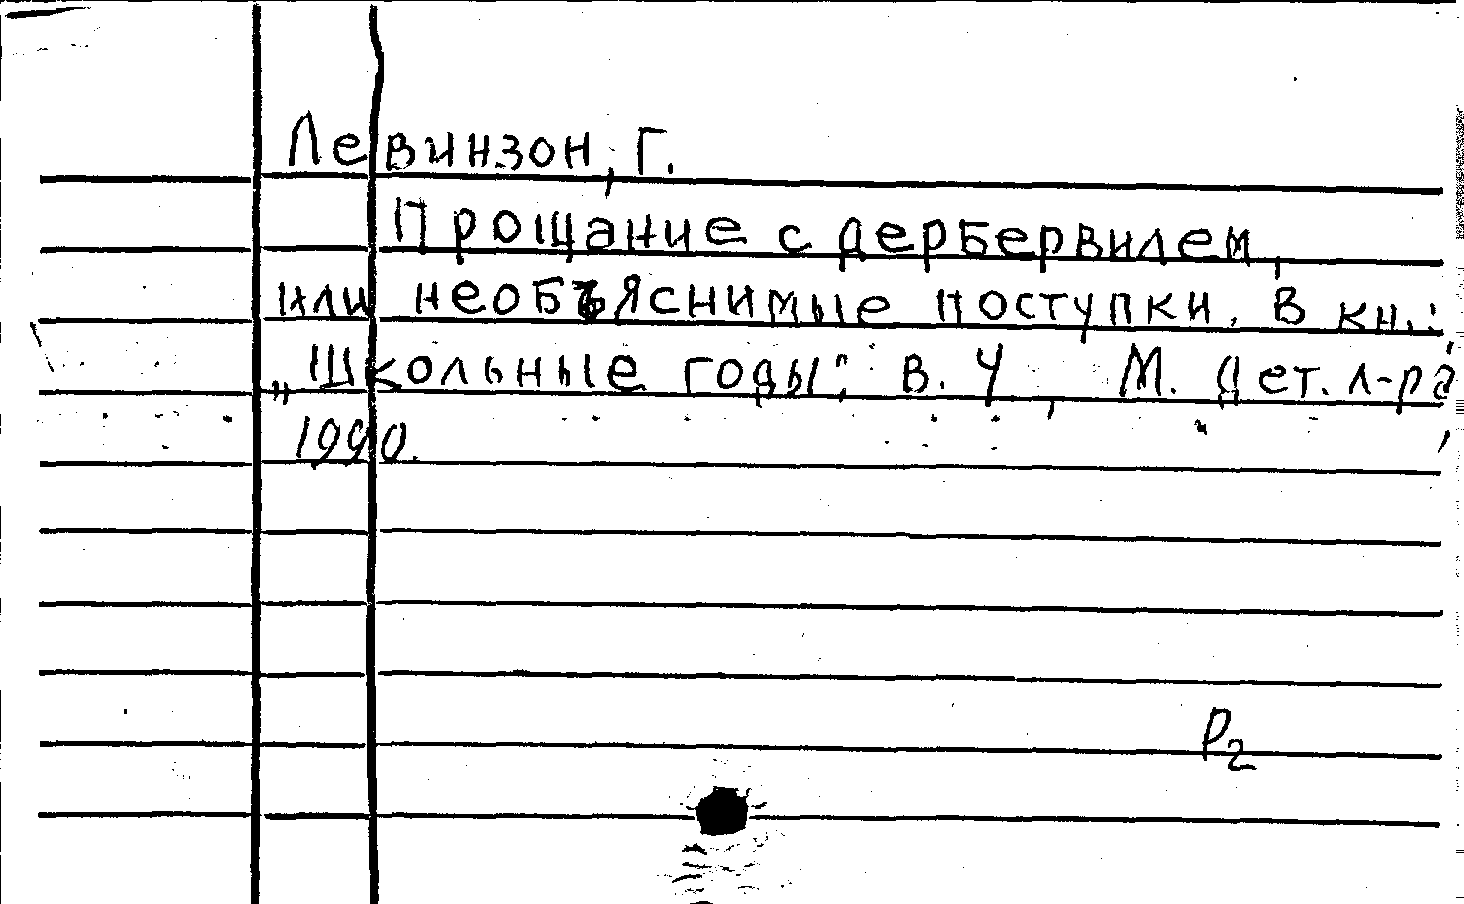 Левинзон, Г.
Прощание с дербервилем,
или необъяснимые поступки. В кн.:
„Школьные годы", в. 4, М. Дет. л-ра,
1990.
Р2